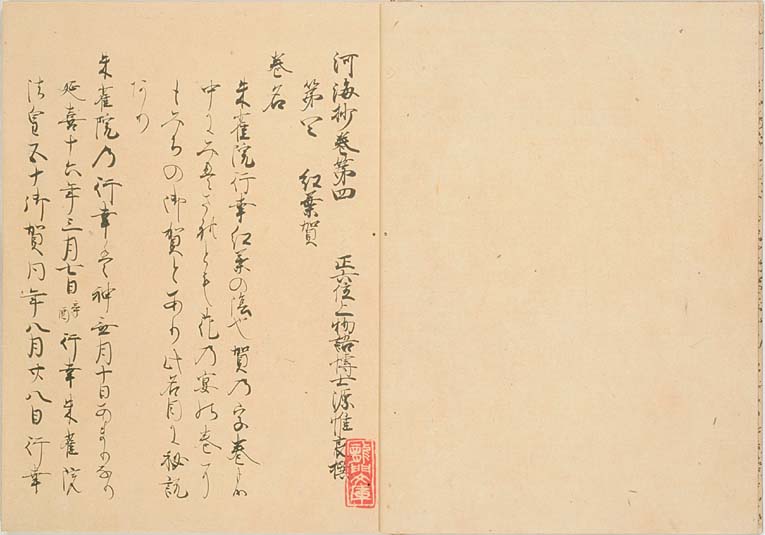 河海抄巻第四
正六位上物語博士源惟良撰
第四 紅葉賀
巻名
朱雀院行幸紅葉の陰也賀乃字巻の
中にみえされとも花乃宴の巻に
もみちの御賀とあり此名目に秘説
あり
朱雀院乃行幸は神無月十日あまりなり
延喜十六年三月七日辛酉行幸朱雀院
法皇五十御賀同年八月廿八日行幸
龍門文庫